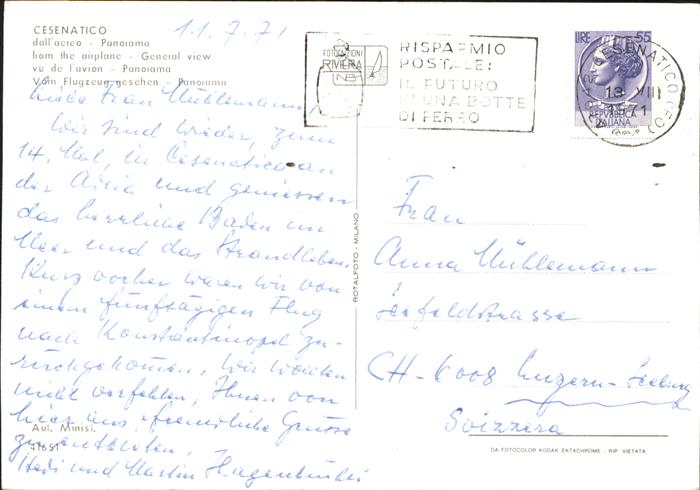 CESENATICO
dall'aereo - Panorama
from the airplane - General view
vu de l'avion - Panorama
Vom Flugzeug gesehen - Panorama
11.7.71
Liebe Frau Mühlemann,
Wir sind wieder, zum
14. Mal, in Cesenatico an
der Adria und geniessen
das herrliche Baden im
Meer und das Strandleben.
Kurz vorher waren wir von
einem fünftägigen Flug
nach Konstantinopel zu-
rückgekommen. Wir wollten
nicht verfehlen, Ihnen von
hier aus freundliche Grüsse
zu entbieten.
Hedi und Martin Hagenbüchli
Aut. Minist.
41651
ROTALFOTO - MILANO
FOTOEDIZIONI
RIVIERA
RISPARMIO
POSTALE:
IL FUTURO
IN UNA BOTTE
DI FERRO
LIRE 55
REPVBBLICA
ITALIANA
CESENATICO (FO)
13 VII
1971
Frau
Anna Mühlemann
Seefeldstrasse
CH-6008 Luzern-Seeburg
Svizzera
DA FOTOCOLOR KODAK EKTACHROME - RIP. VIETATA